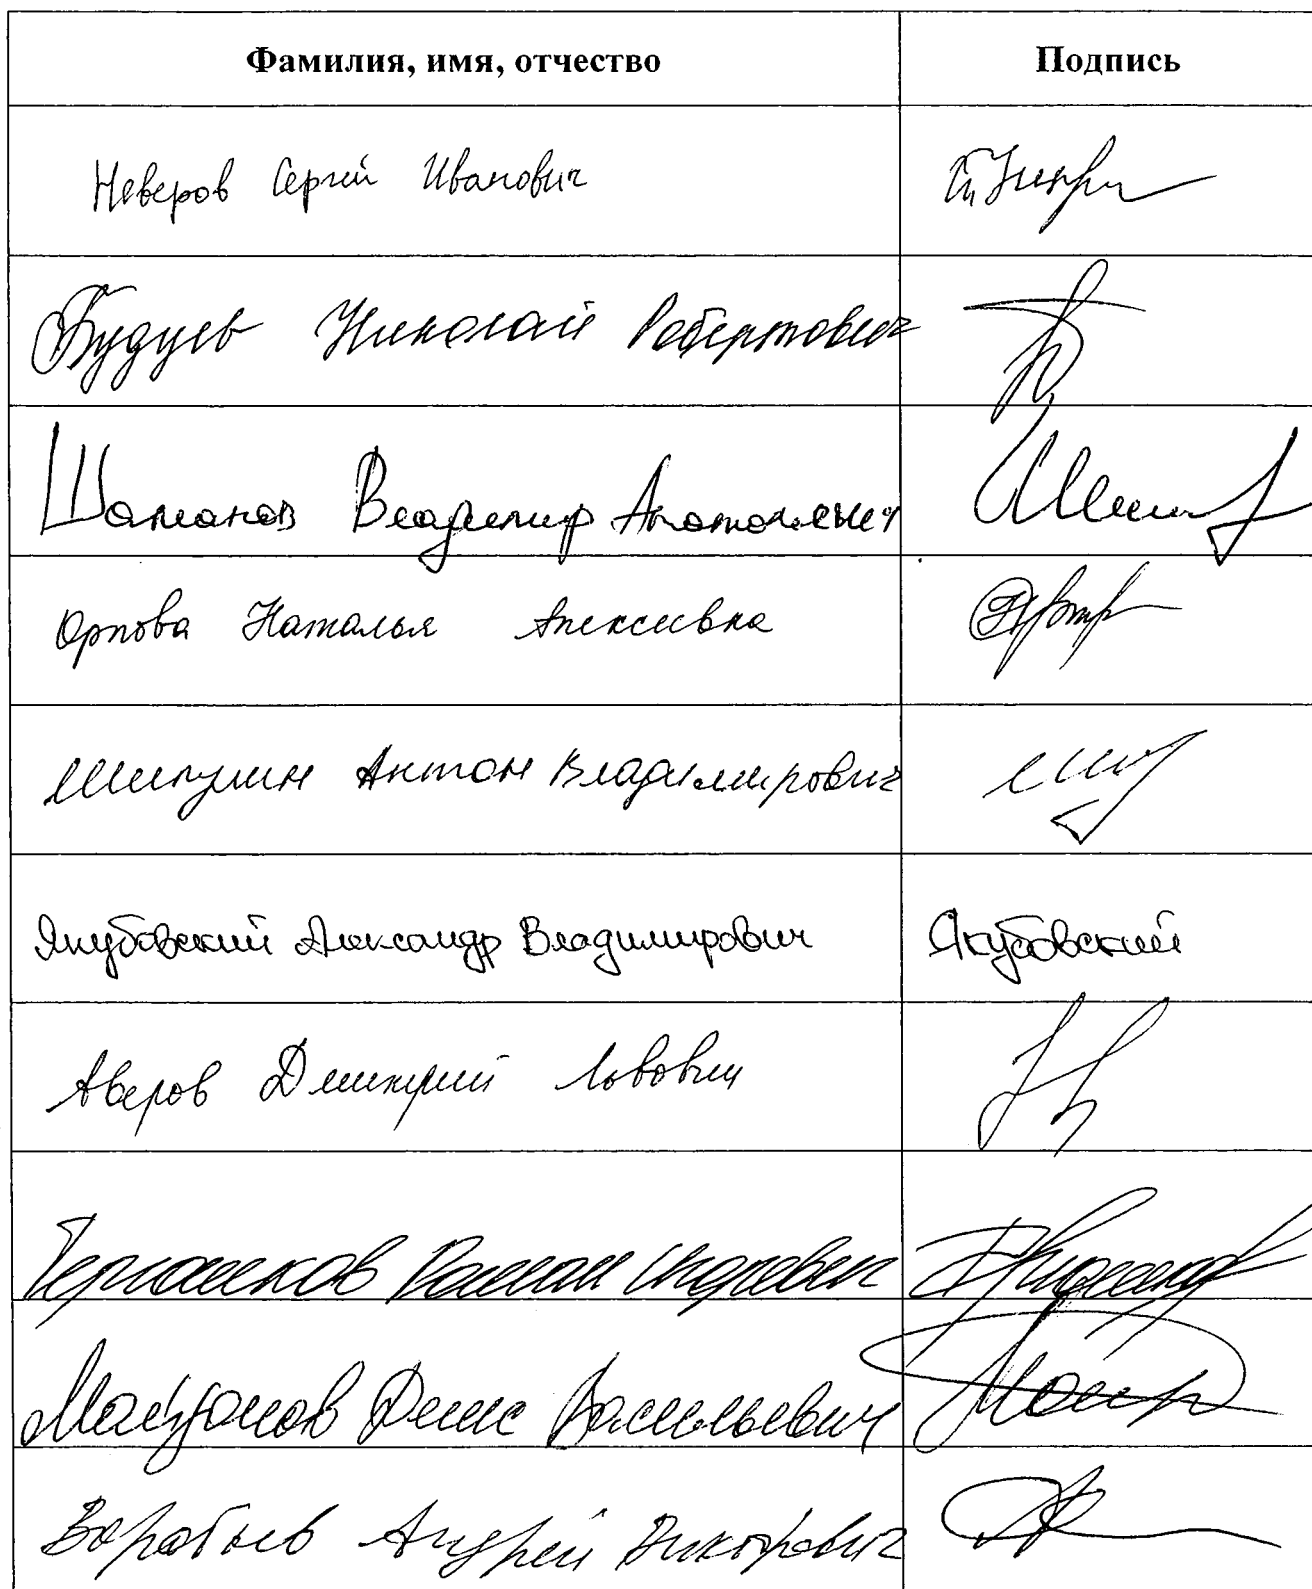 Фамилия, имя, отчество Подпись
Неверов Сергей Иванович
Будуев Николай Робертович
Шаманов Владимир Анатольевич
Орлова Наталья Алексеевна
Шипулин Антон Владимирович
Якубовский Александр Владимирович Якубовский
Аверов Дмитрий Львович
Романков Роман Игоревич
Майданов Денис Васильевич
Воробьев Андрей Викторович